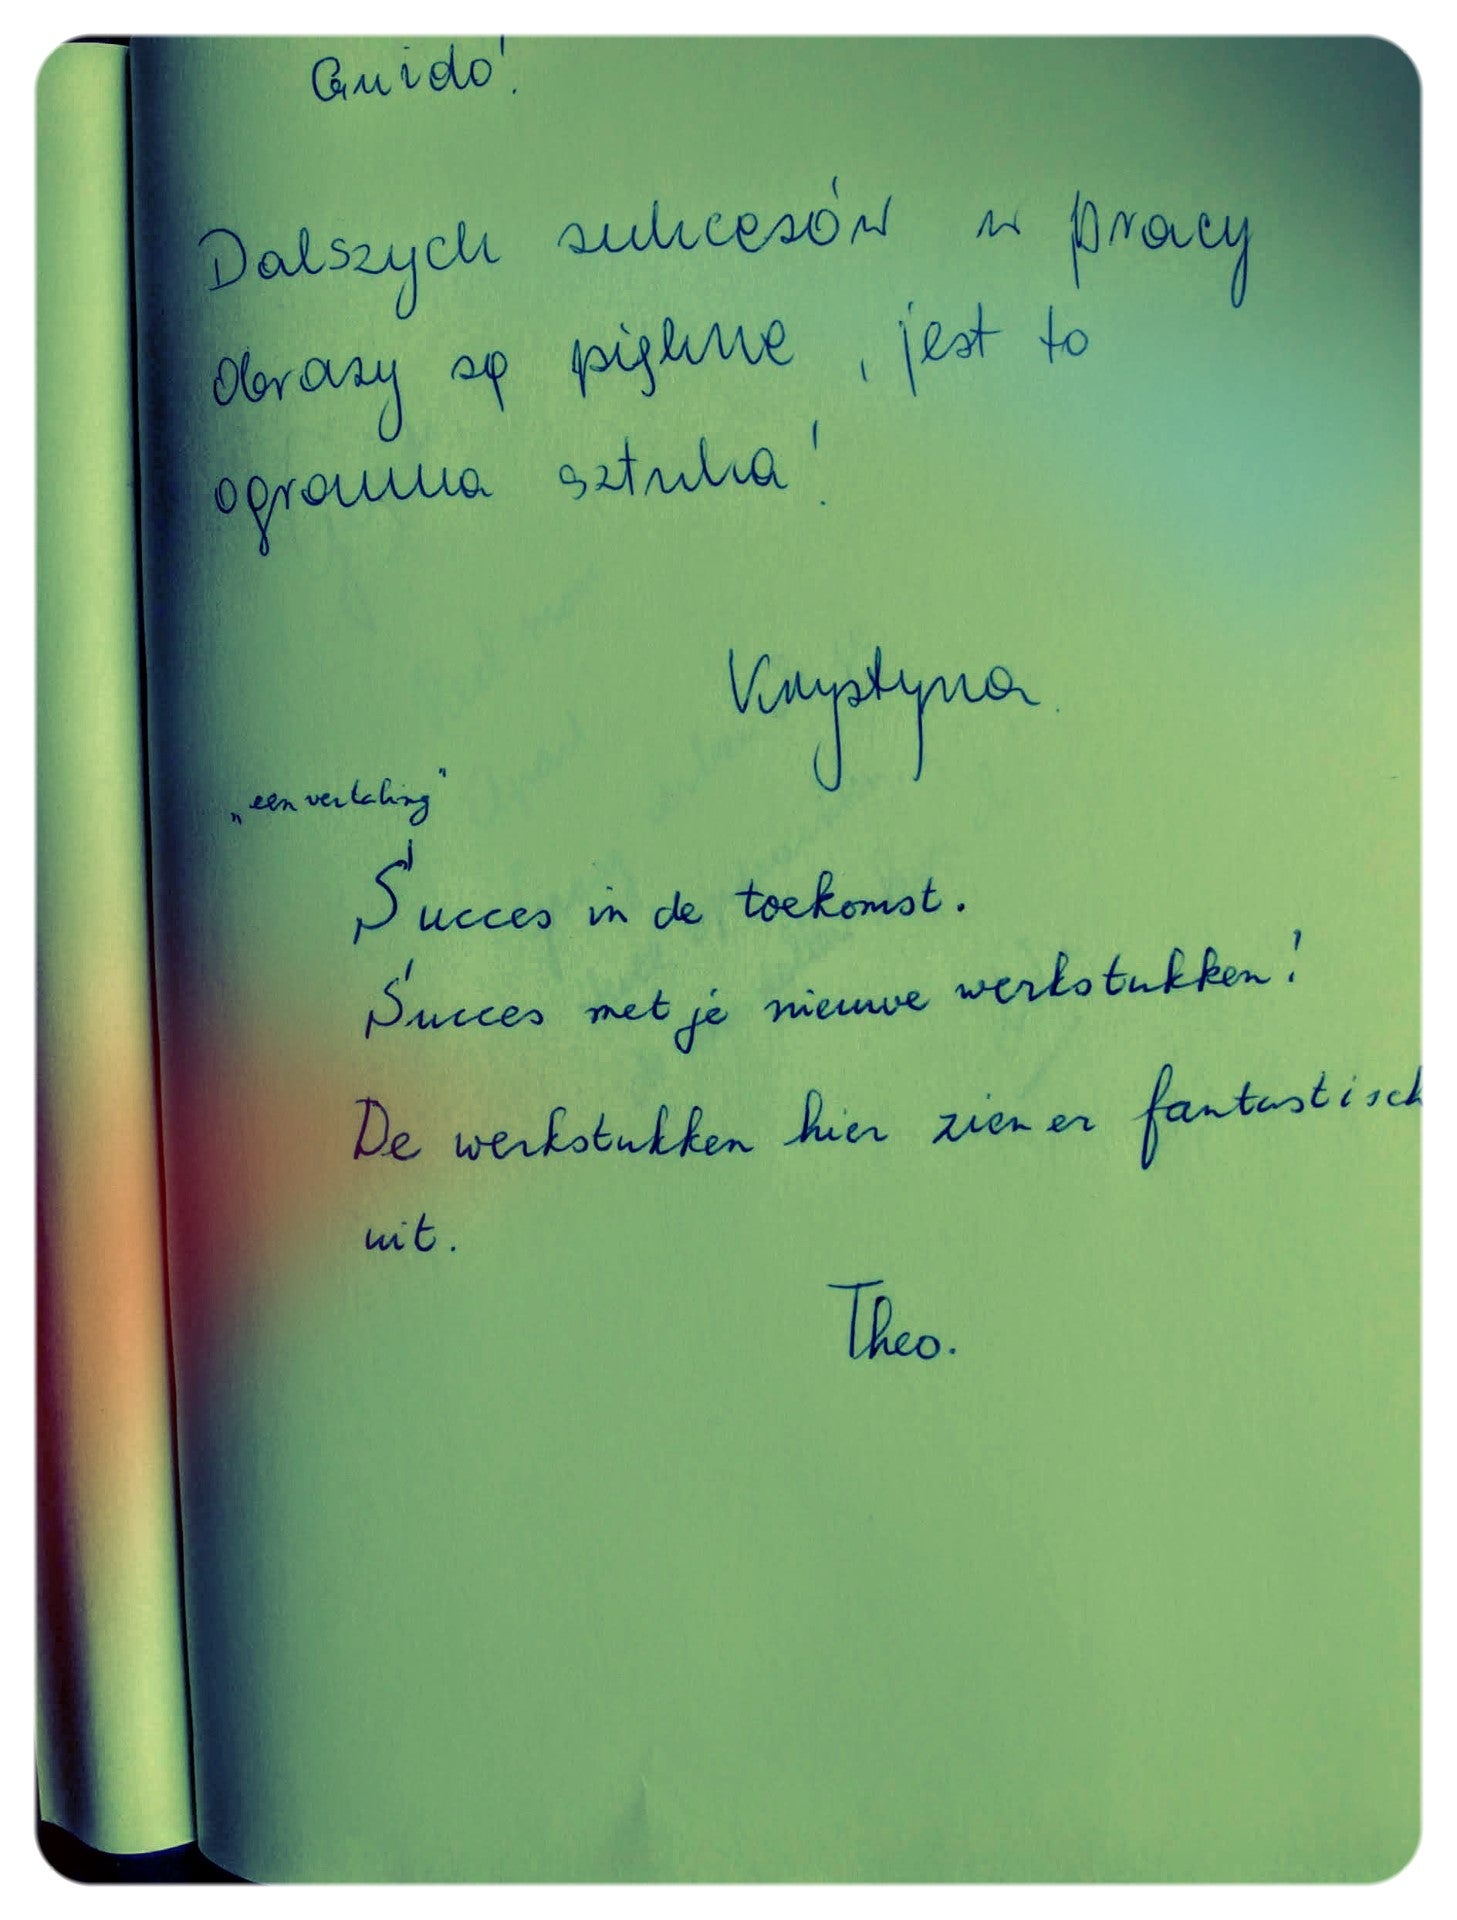 Guido!
Dalszych sukcesów w pracy
Obrazy są piękne, jest to
ogromna sztuka!
Krystyna.
„een vertaling"
Succes in de toekomst.
Succes met je nieuwe werkstukken!
De werkstukken hier zien er fantastisch
uit.
Theo.